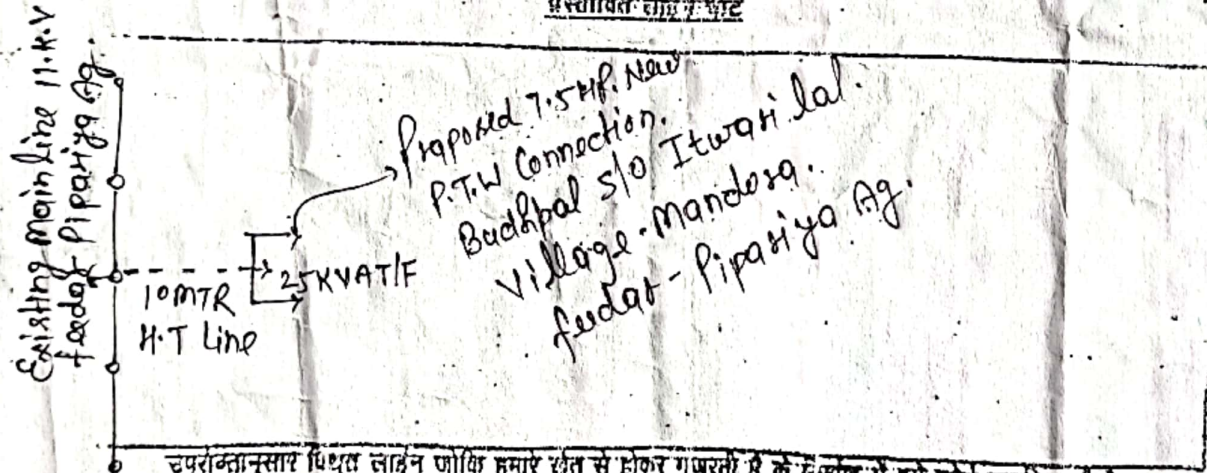 प्रस्तावित लाईन चार्ट
Existing main line 11.K.V
feedar Pipariya Ag.
Proposed 7.5 HP. New
P.T.W Connection.
Badhpal S/O Itwari lal.
Village - Mandosa.
feedar - Pipariya Ag.
25 KVA T/F
10 MTR
H.T Line
उपरोक्तानुसार विधुत लाईन जोकि हमारे खेत से होकर गुजरती है के